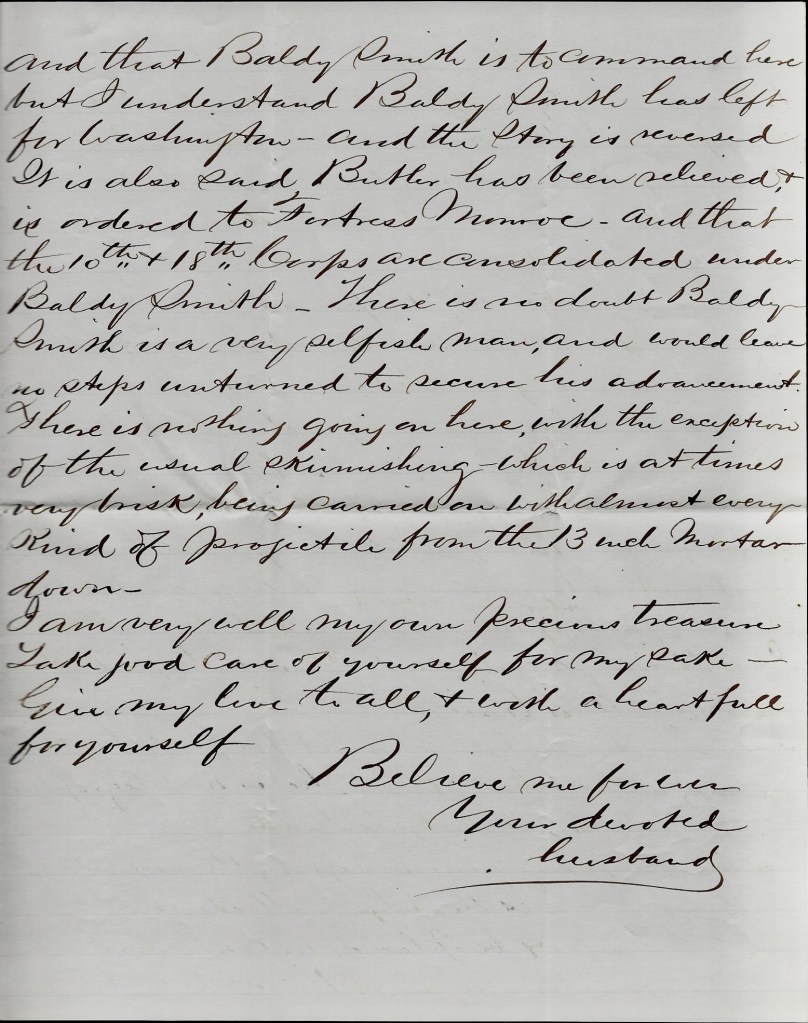 and that Baldy Smith is to command here
but I understand Baldy Smith has left
for Washington - and the story is reversed
It is also said, Butler has been relieved, &
is ordered to Fortress Monroe - and that
the 10th & 18th Corps are consolidated under
Baldy Smith - There is no doubt Baldy
Smith is a very selfish man, and would leave
no steps unturned to secure his advancement.
There is nothing going on here, with the exception
of the usual skirmishing - which is at times
very brisk, being carried on with almost every
kind of projectile from the 13 inch Mortar
down -
I am very well my own precious treasure
Take good care of yourself for my sake -
Give my love to all, & with a heart full
for yourself
Believe me forever
Your devoted
husband